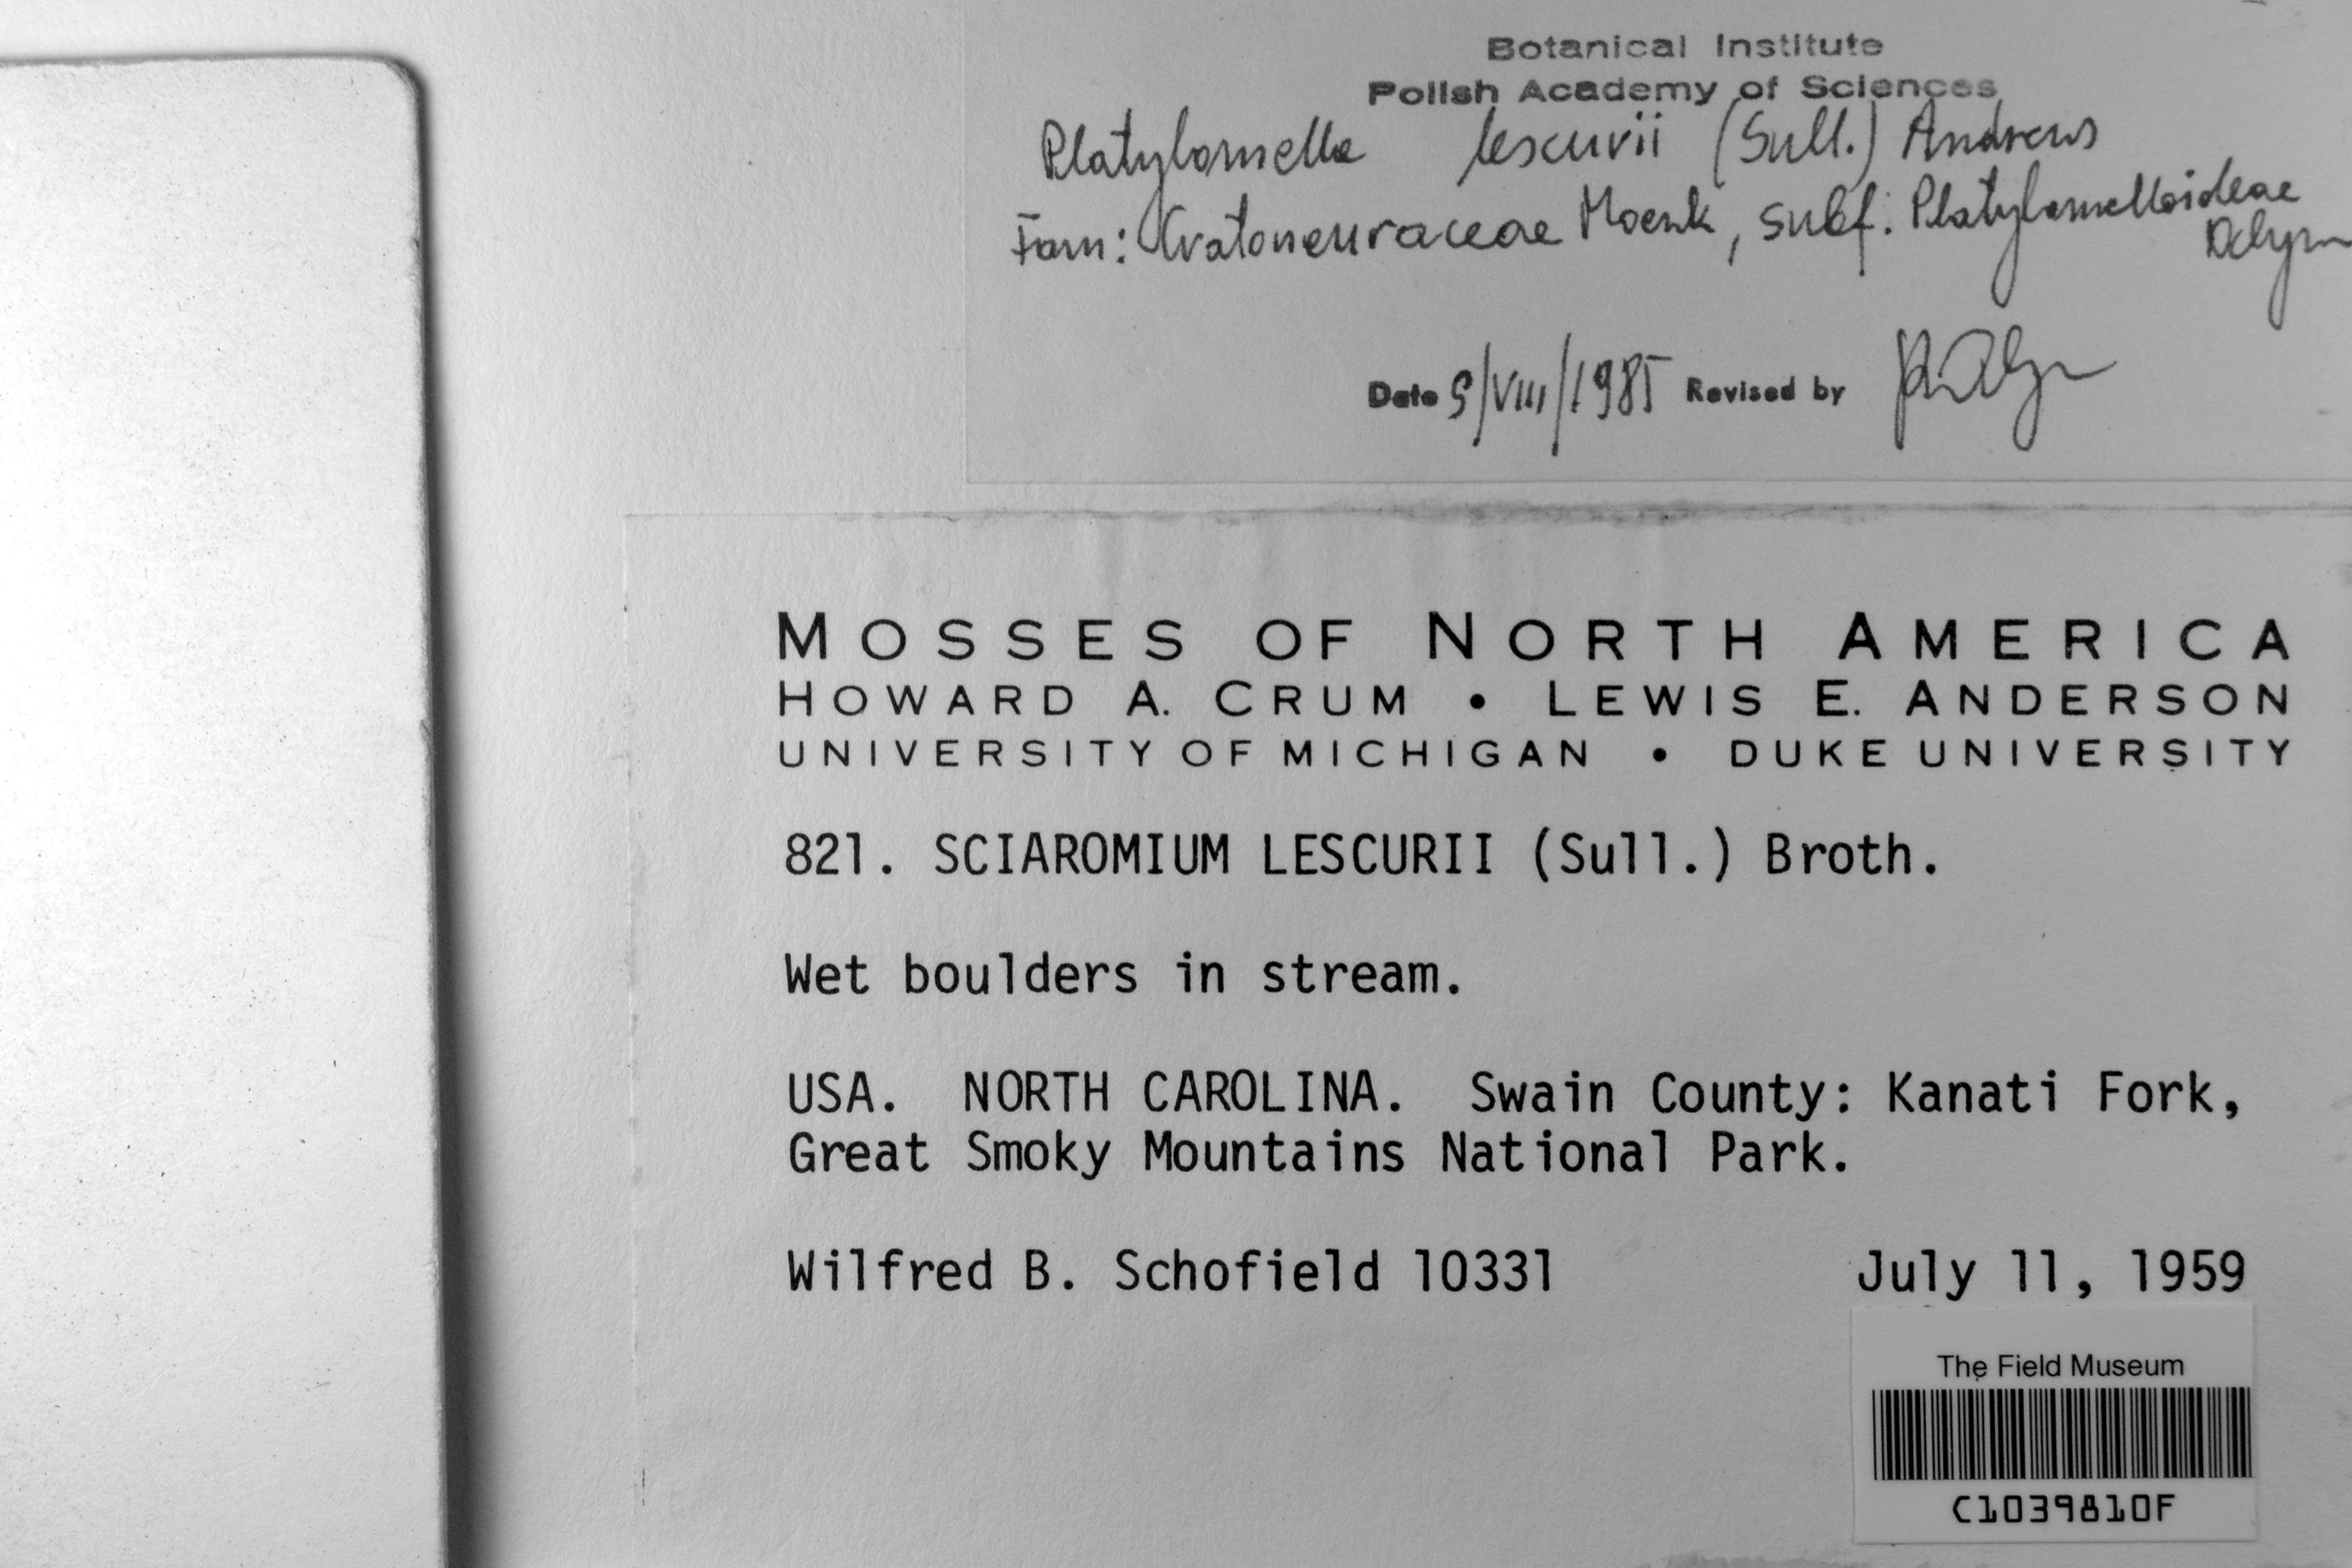 Botanical Institute
Polish Academy of Sciences
Platylomella lescurii (Sull.) Andrews
Fam: Cratoneuraceae Moenk, subf. Platylomelloideae
Date 9/VIII/1985 Revised by
MOSSES OF NORTH AMERICA
HOWARD A. CRUM • LEWIS E. ANDERSON
UNIVERSITY OF MICHIGAN • DUKE UNIVERSITY
821. SCIAROMIUM LESCURII (Sull.) Broth.
Wet boulders in stream.
USA. NORTH CAROLINA. Swain County: Kanati Fork,
Great Smoky Mountains National Park.
Wilfred B. Schofield 10331 July 11, 1959
The Field Museum
C1039810F